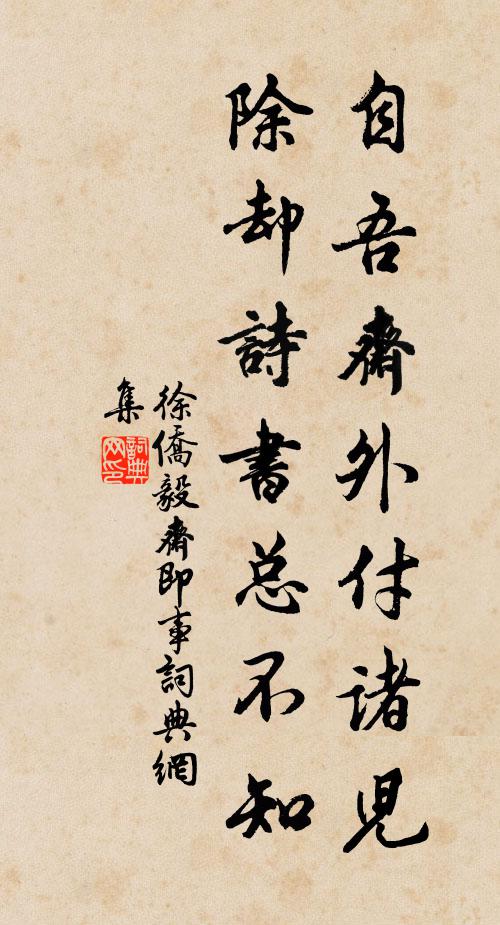 自吾齋外付諸兒
除却詩書总不知
徐僑毅齋即事詞典網
集
詞典
网印